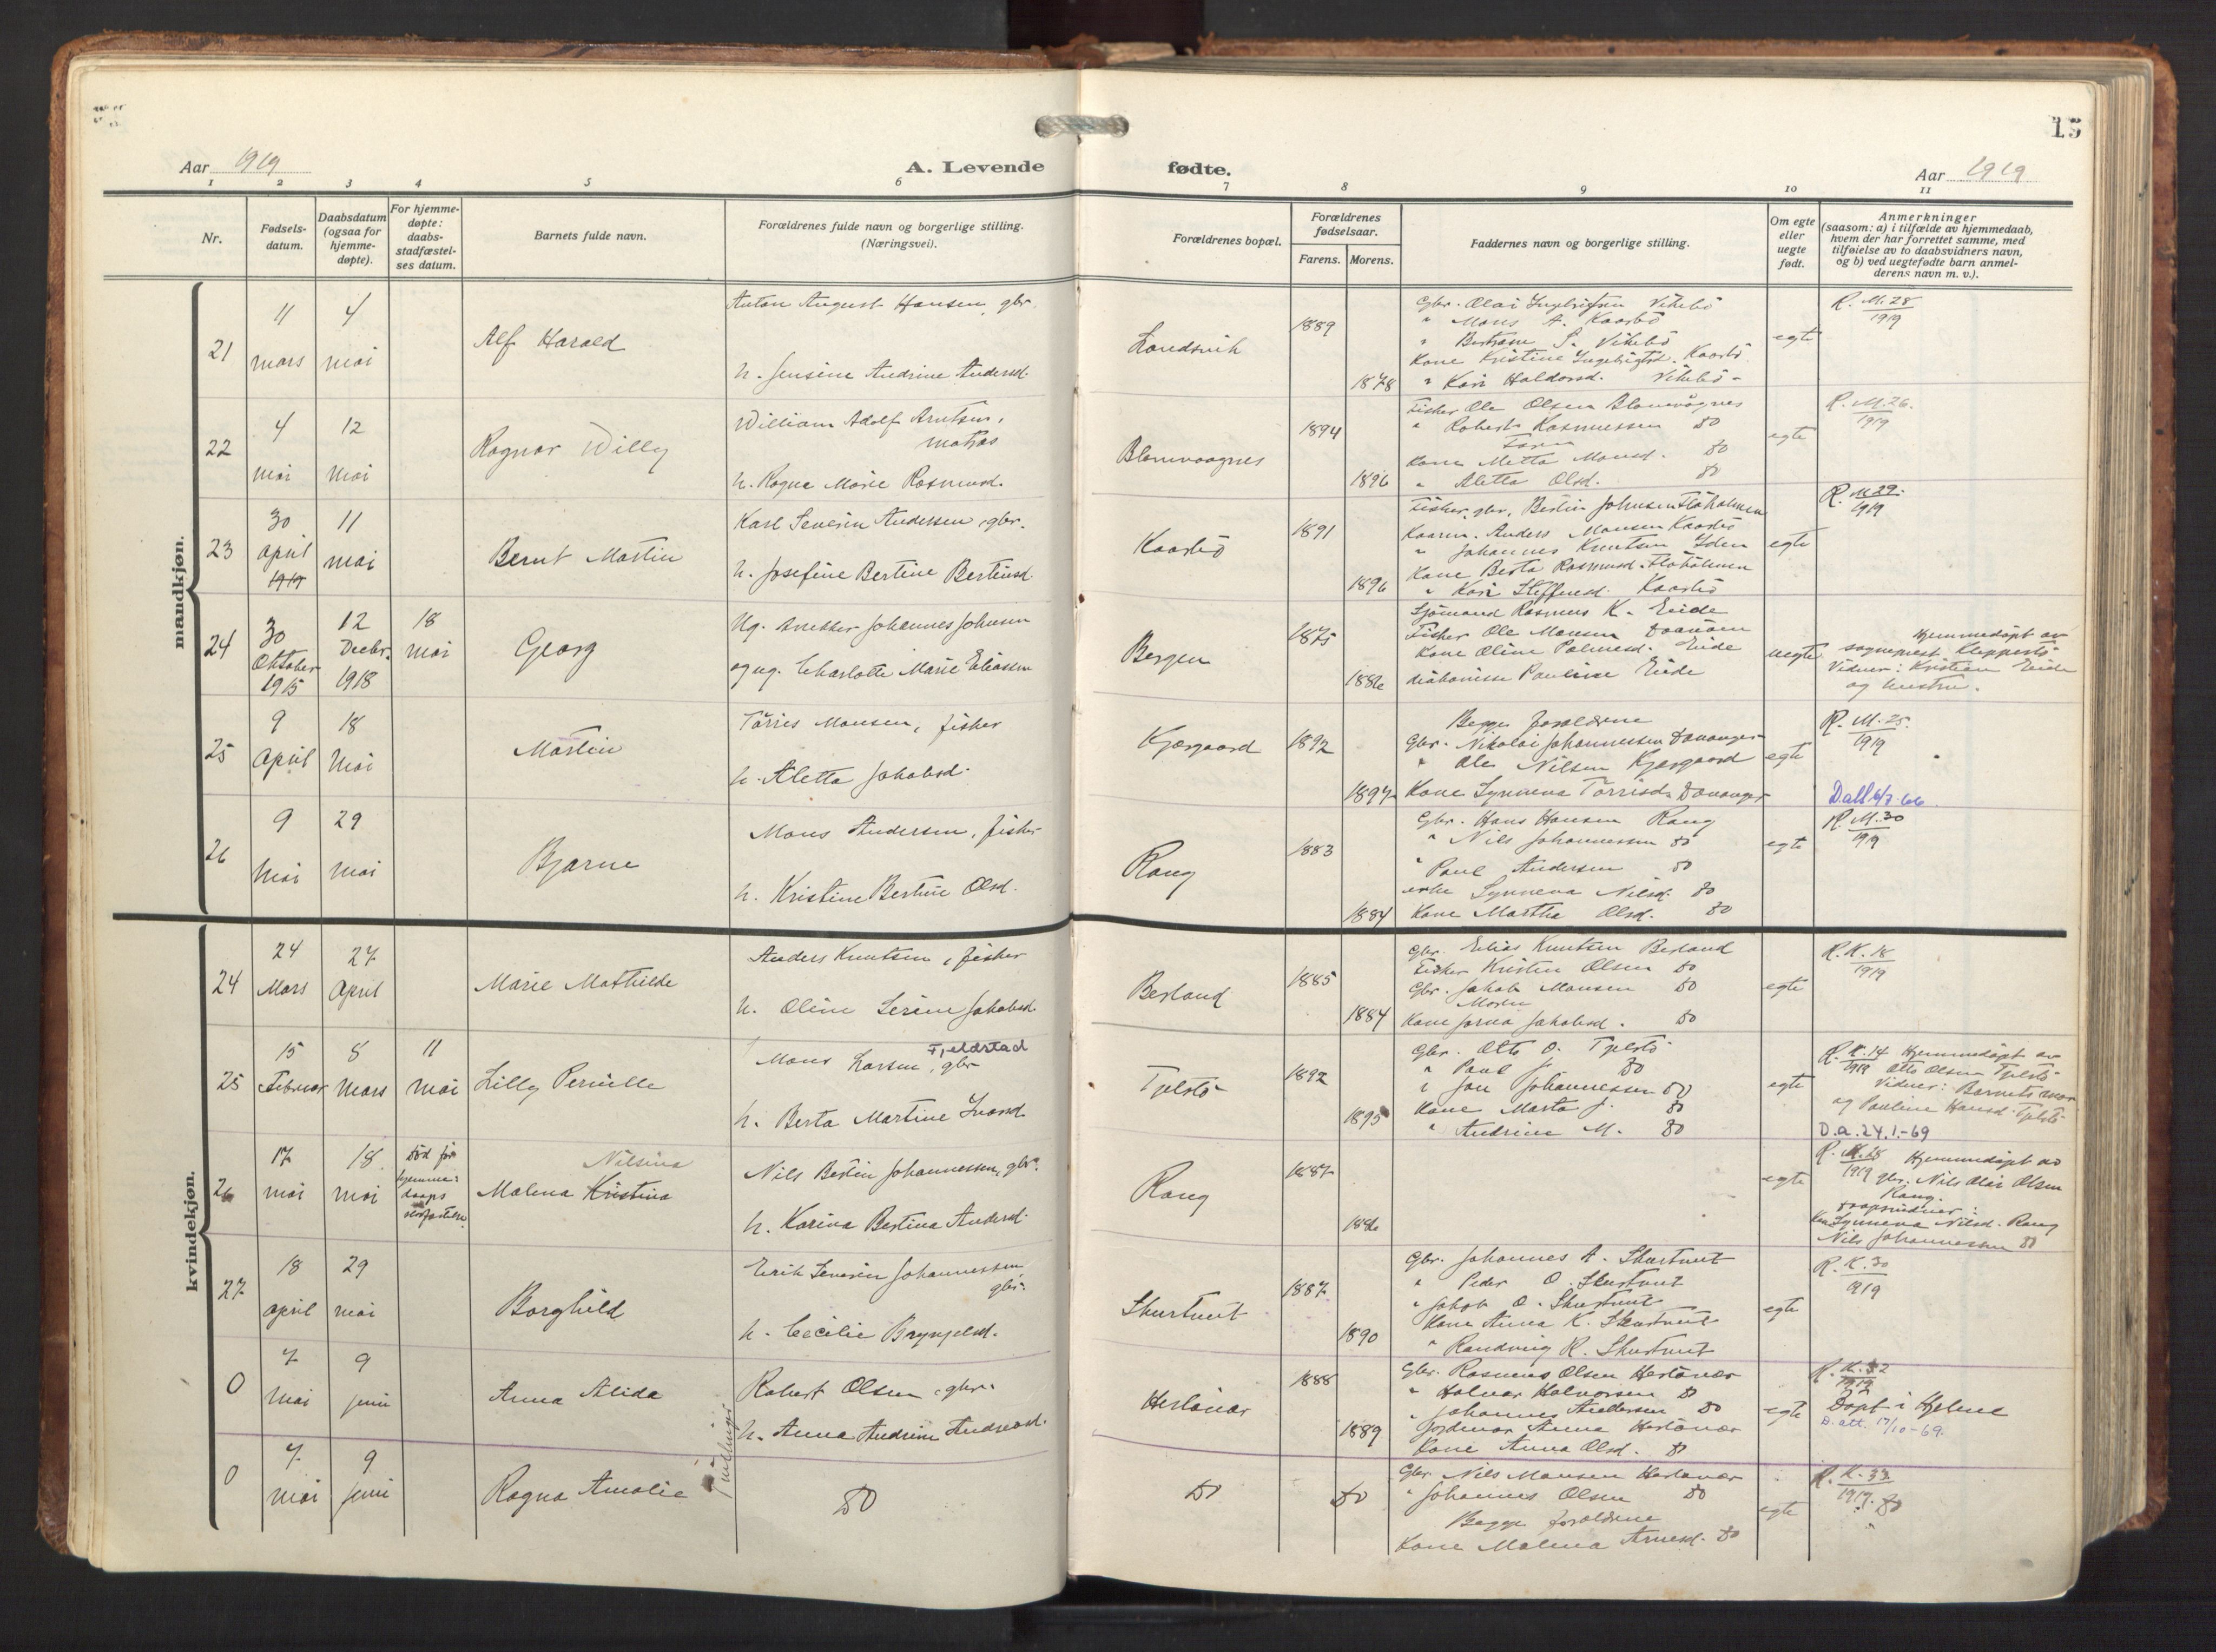 15
Aar 1919
A. Levende fødte.
Aar 1919
1 2 3 4 5 6 7 8 9 10 11
Nr.
Fødsels-
datum.
Daabsdatum
(ogsaa for
hjemme-
døpte).
For hjemme-
døpte:
daabs-
stadfæstel-
ses datum.
Barnets fulde navn.
Forældrenes fulde navn og borgerlige stilling.
(Næringsvei).
Forældrenes bopæl.
Forældrenes
fødselsaar.
Farens. Morens.
Faddernes navn og borgerlige stilling.
Om egte
eller
uegte
født.
Anmerkninger
(saasom: a) i tilfælde av hjemmedaab,
hvem der har forrettet samme, med
tilføielse av to daabsvidners navn,
og b) ved uegtefødte barn anmel-
derens navn m. v.).
mandkjøn.
21
11
mars
4
mai
Alf Harald
Anton August Hansen, gbr.
h. Jensine Andrine Andersd.
Landsvik
1889
1878
Gbr. Olai Ingebrigtsen Vikebö
" Mons A. Kaarbö
" Bertram S. Vikebö
Kone Kristine Ingebrigtsd. Kaarbö
" Kari Haldorsd. Vikebö
egte
R. M. 28
1919
22
4
mai
12
mai
Ragnar Willy
William Adolf Arntsen,
matros
h. Ragna Marie Rasmusd.
Blomvaagnes
1894
1896
Fisker Ole Olsen Blomvågnes
" Robert Rasmussen do
Faren
Kone Metta Monsd. do
" Aletta Olsd. do
egte
R. M. 26.
1919
23
30
april
1919
11
mai
Bernt Martin
Karl Severin Andersen, gbr.
h. Josefine Bertine Bertinsd.
Kaarbö
1891
1896
Fisker, gbr. Bertin Johnsen Flåholmen
Kaarm. Anders Monsen Kaarbö
" Johannes Knutsen Yden
Kone Berta Rasmusd. Flåholmen
" Kari Steffensd. Kaarbö
egte
R. M 29.
1919
24
30
Oktober
1915
12
Decbr.
1918
18
mai
Georg
Ug. snekker Johannes Johnsen
og ug. Charlotte Marie Eliassen
Bergen
1875
1886
Sjömand Rasmus K. Eide
Fisker Ole Monsen Daaöen
Kone Oline Palmesd. Eide
diakonisse Pauline Eide
uegte
Hjemmedöpt av
sogneprest Kleppestö
Vidner: Kristian Eide
og hustru.
25
9
April
18
Mai
Martin
Törries Monsen, fisker
h. Aletta Jakobsd.
Kjærgaard
1892
1897
Begge forældrene
Gbr. Nikolai Johannessen Davanger
" Ole Nilsen Kjærgaard
Kone Synneva Törrisd. Davanger
egte
R. M. 25.
1919
D.att 6/7-66.
26
9
Mai
29
Mai
Bjarne
Mons Andersen, fisker
h. Kristine Bertine Olsd.
Rong
1883
1884
Gbr. Hans Hansen Rong
" Nils Johannessen do
" Paul Andersen do
enke Synneva Nilsd. do
Kone Martha Olsd. do
egte
R. M. 30
1919
kvindekjøn.
24
24
Mars
27
April
Marie Mathilde
Anders Knutsen, fisker
h. Oline Serine Jakobsd.
Berland
1885
1884
Gbr. Elias Knutsen Berland
Fisker Kristen Olsen do
Gbr. Jakob Monsen do
Moren
Kone Jorina Jakobsd. do
egte
R. K. 18
1919
25
15
Februar
8
Mars
11
mai
Lilly Pernille
Fjeldstad
Mons Larsen, gbr
h. Berta Martine Ivarsd.
Tjelstö
1892
1895
Gbr. Otto O. Tjelstö
" Paul J. do
" Jon Johannessen do
Kone Marta J. do
" Andrine M. do
egte
R. K. 14 Hjemmedöpt av
1919 Otto Olsen Tjelstö
Vidner: Barnets mor
og Pauline Hansd. Tjelstö
D.a. 24.1.-69
26
17
mai
18
mai
Död för
hjemme-
daaps
stadfæstelse
Nilsina
Malena Kristina
Nils Bertin Johannessen, gbr.
h. Karina Bertina Andersd.
Rong
1887
1886
egte
Hjemmedöpt av
1919 gbr. Nils Olai Olsen
Rong.
daapsvidner:
Synneva Nilsd. Rong
Nils Johannessen do
27
18
april
29
mai
Borghild
Erik Severin Johannessen
gbr.
h. Cecilie Brynjelsd.
Skurtveit
1887
1890
Gbr. Johannes A. Skurtveit
" Peder O. Skurtveit
" Jakob O. Skurtveit
Kone Anna K. Skurtveit
" Randveig R. Skurtveit
egte
R. K. 30
1919
0
7
Mai
9
juni
Anna Alida
Robert Olsen, gbr.
h. Anna Andrine Andreasd.
Herlöver
1888
1889
Gbr. Rasmus Olsen Herlöver
" Halvor Halvorsen do
" Johannes Andersen do
Jordmor Anna Herlöver
Kone Anna Olsd. do
egte
R. K. 32
1919
Döpt i Hjelme
D. att. 17/10-69.
0
7
Mai
9
juni
Ragna Amalie
Tvillinger
do
do
do
Gbr. Nils Monsen Herlöver
" Johannes Olsen do
Begge forældrene
Kone Malena Arnesd. do
egte
R. K. 33
1919. do